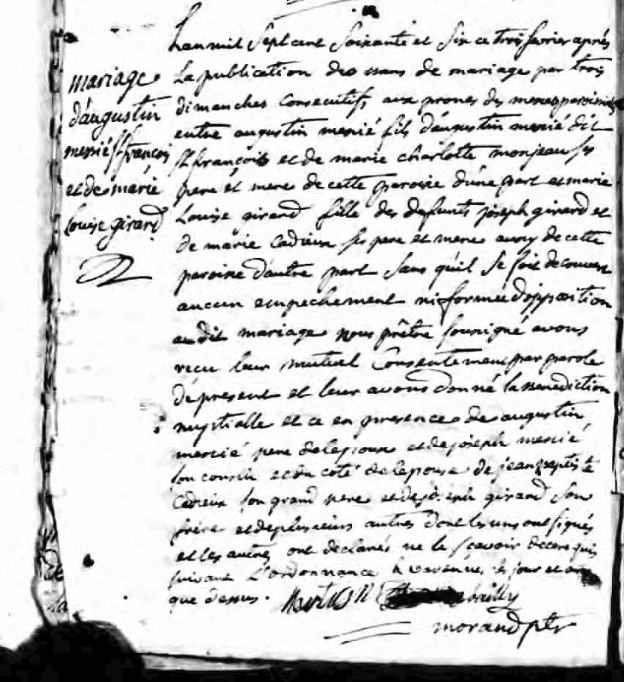 mariage
d'augustin
messié st françois
et de marie
Louise girard
Lan mil Sept cent Soixante et Six ce trois fevrier après
la publication des bans de mariage par trois
dimanches consecutifs aux prones des messes paroissiales
entre augustin messié fils d'augustin messié dit
st françois et de marie charlotte monjeau ses
pere et mere de cette paroisse d'une part et marie
Louise girard fille des defunts joseph girard et
de marie Cadieux ses pere et mere aussy de cette
paroisse d'autre part sans qu'il se soit decouvert
aucun empechement ni formée d'opposition
au dit mariage nous prêtre sousigné avons
recu leur mutuel Consentement par parole
de present et leur avons donné la benediction
nuptialle et ce en presence de augustin
messié pere de lepoux et de joseph messié
son cousin et du côté de lepouse de jean baptiste
Cadieux son grand pere et de joseph girard son
frère et de plusieurs autres dont les uns ont signés
et les autres ont declarés ne le scavoir de ce requis
suivant L'ordonnance à varennes le jour et an
que dessus.
morand ptr